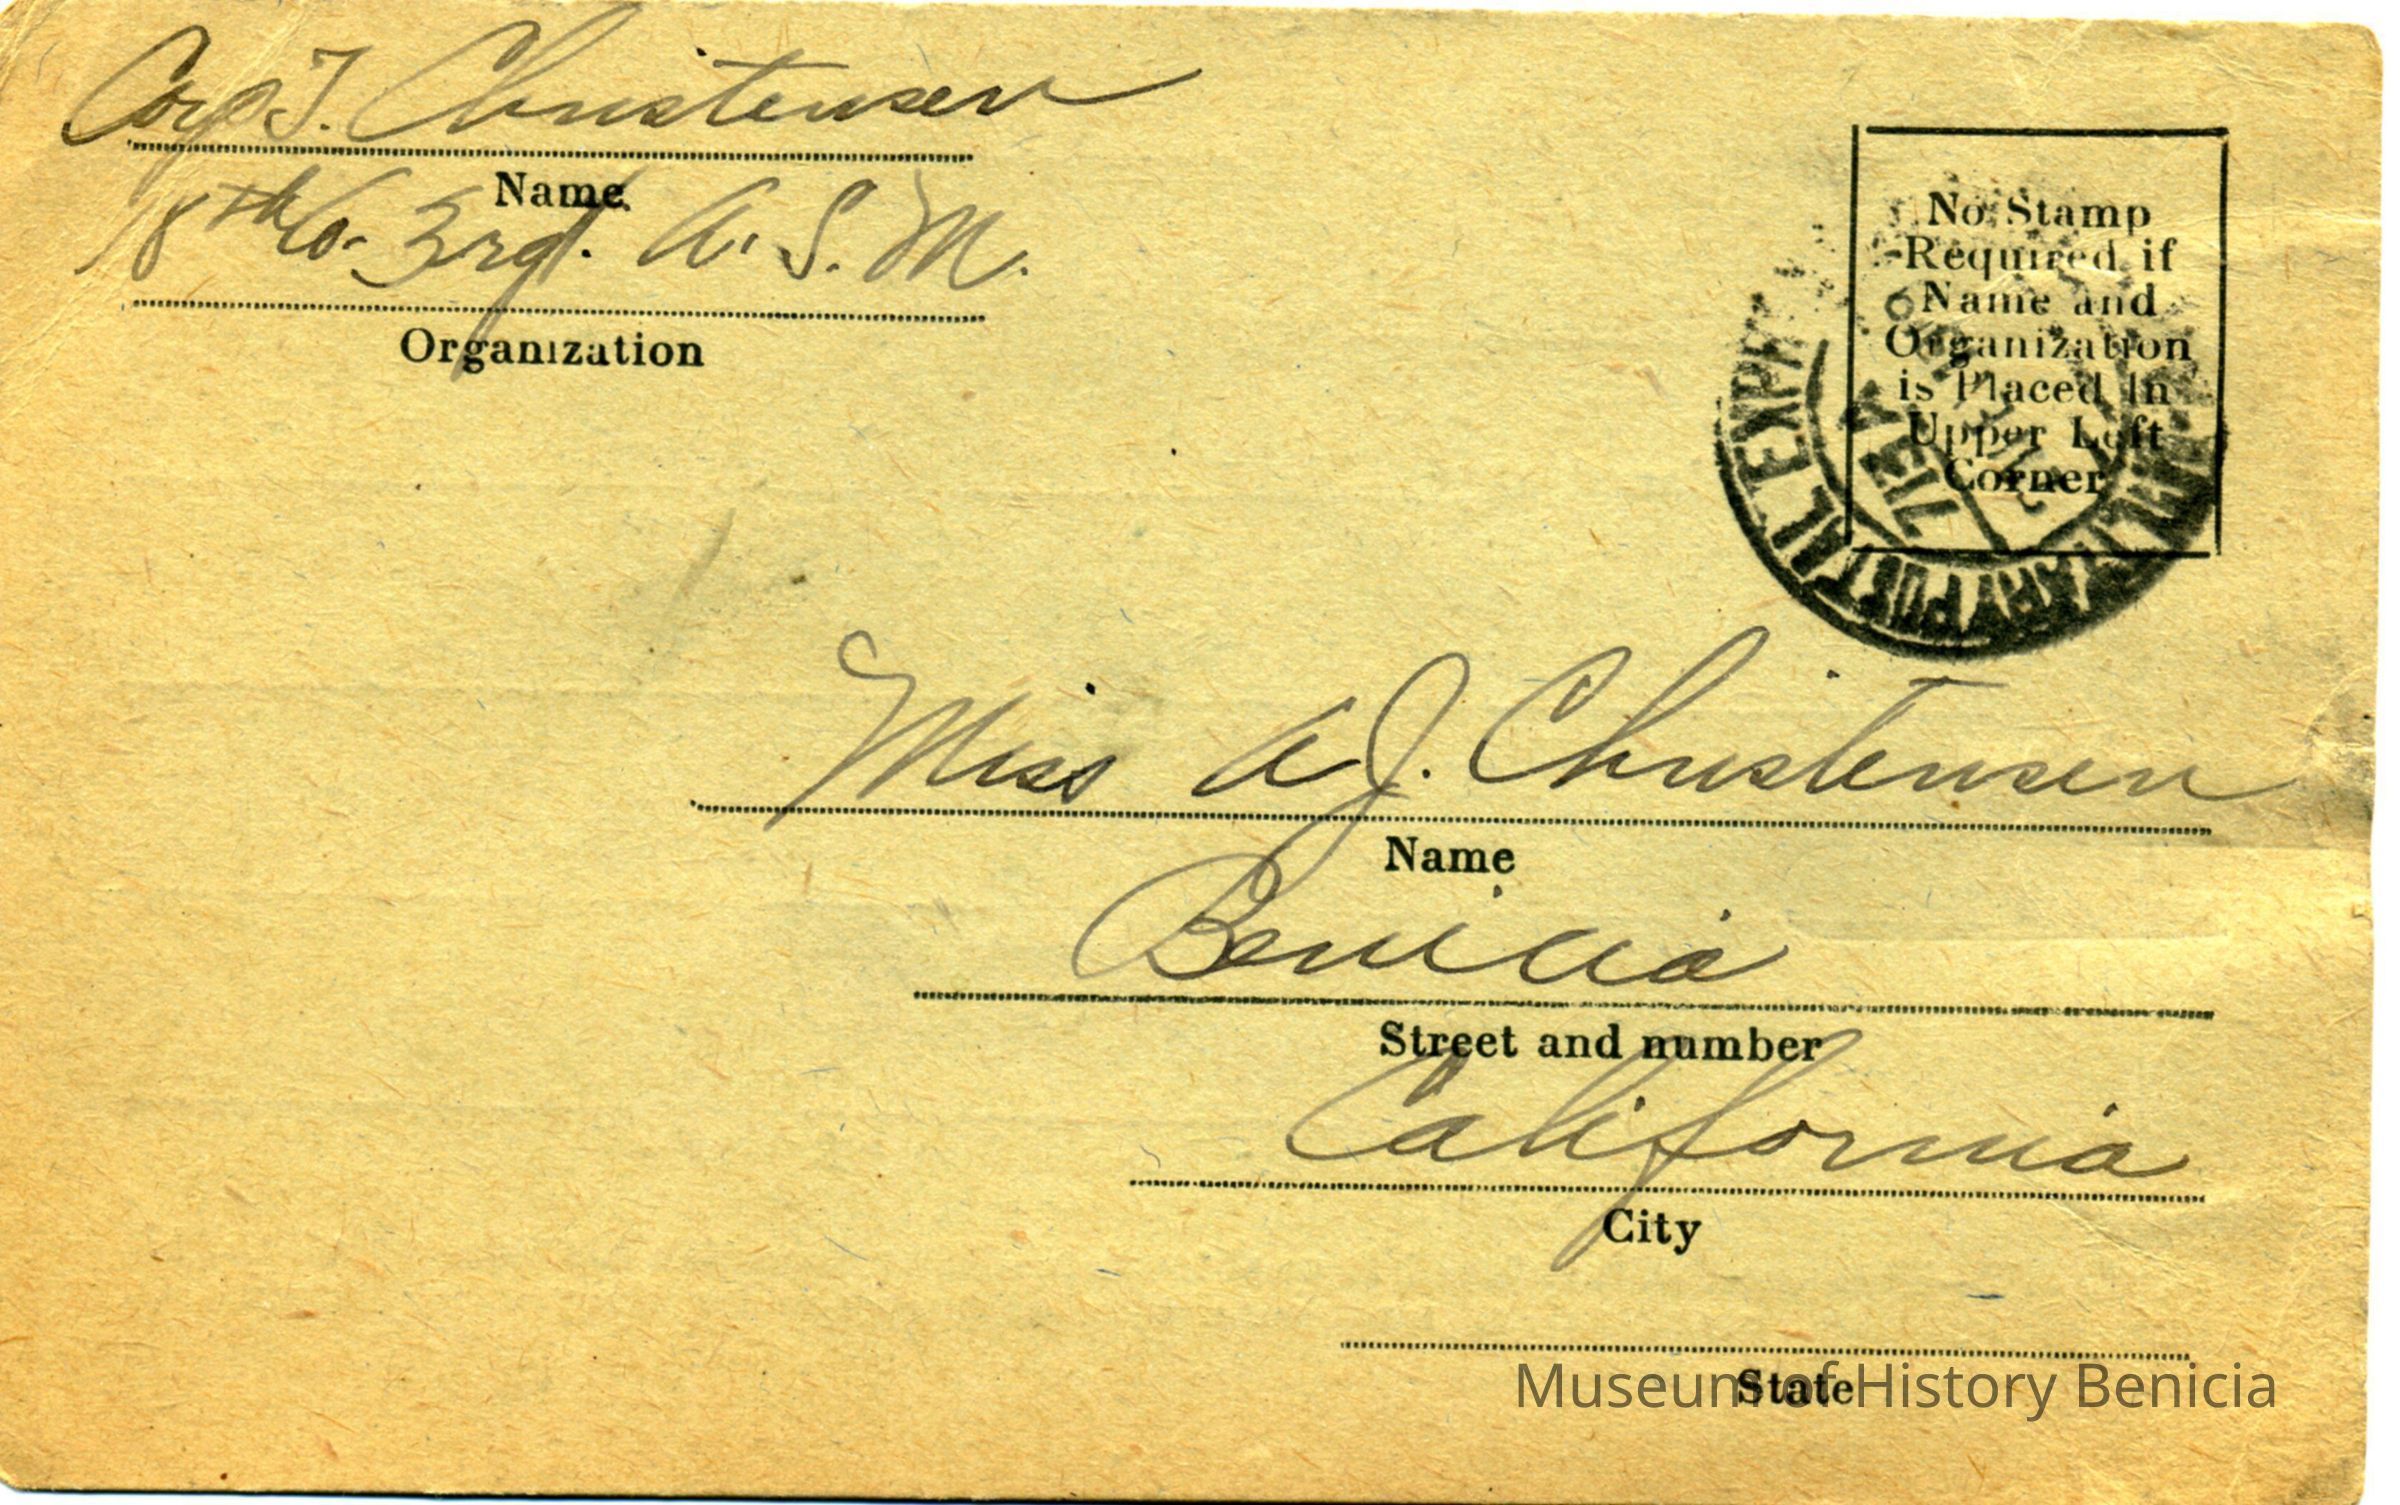 Corp J. Christensen
Name
18th Co. 3rd. A. S. M.
Organization
No Stamp
Required if
Name and
Organization
is Placed In
Upper Left
Corner
MILITARY POSTAL EXPR
Miss A J. Christensen
Name
Benicia
Street and number
California
City
State
Museum of History Benicia